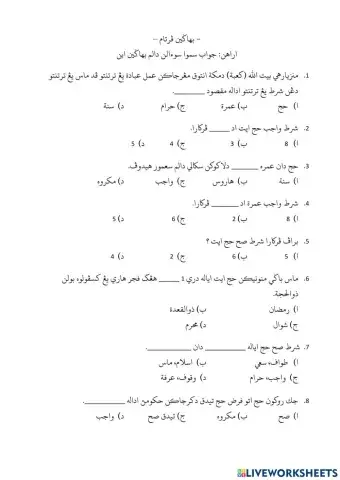 - بهاݢين ڤرتام --
ارهن: جواب سموا سوءالن دالم بهاݢين اين
1. منزيارهي بيت الله (كعبة) دمكة انتوق مڠرجاكن عمل عبادة يڠ ترتنتو قد ماس يڠ ترتنتو
دڠن شرط يڠ ترتنتو اداله مقصود ________.
ا) حج ب) عمرة ج) حرام د) سنة
2. شرط واجب حج ايت اد _____ ڤركارا.
ا) 8 ب) 3 ج) 4 د) 5
3. حج دان عمره _______ دلاكوكن سكالي دالم سعمور هيدوڤ.
ا) سنة ب) هاروس ج) واجب د) مكروه
4. شرط واجب عمرة اد _______ ڤركارا.
ا) 8 ب) 2 ج) 6 د) 5
5. براڤ ڤركارا شرط صح حج ايت ؟
ا) 5 ب) 6 ج) 2 د) 4
6. ماس باݢي منونيكن حج ايت اياله دري 1 _____ هڠݢ فجر هاري يڠ كسڤولوه بولن
ذوالحجة.
ا) رمضان ب) ذوالقعدة
ج) شوال د) محرم
7. شرط صح حج اياله __________ دان __________.
ا) طواف، سعي ب) اسلام، ماس
ج) واجب، حرام د) وقوف، عرفة
8. جك روكون حج اتو فرض حج تيدق دكرجاكن حكومن اداله __________.
ا) صح ب) مكروه ج) تيدق صح د) واجب
LIVEWORKSHEETS